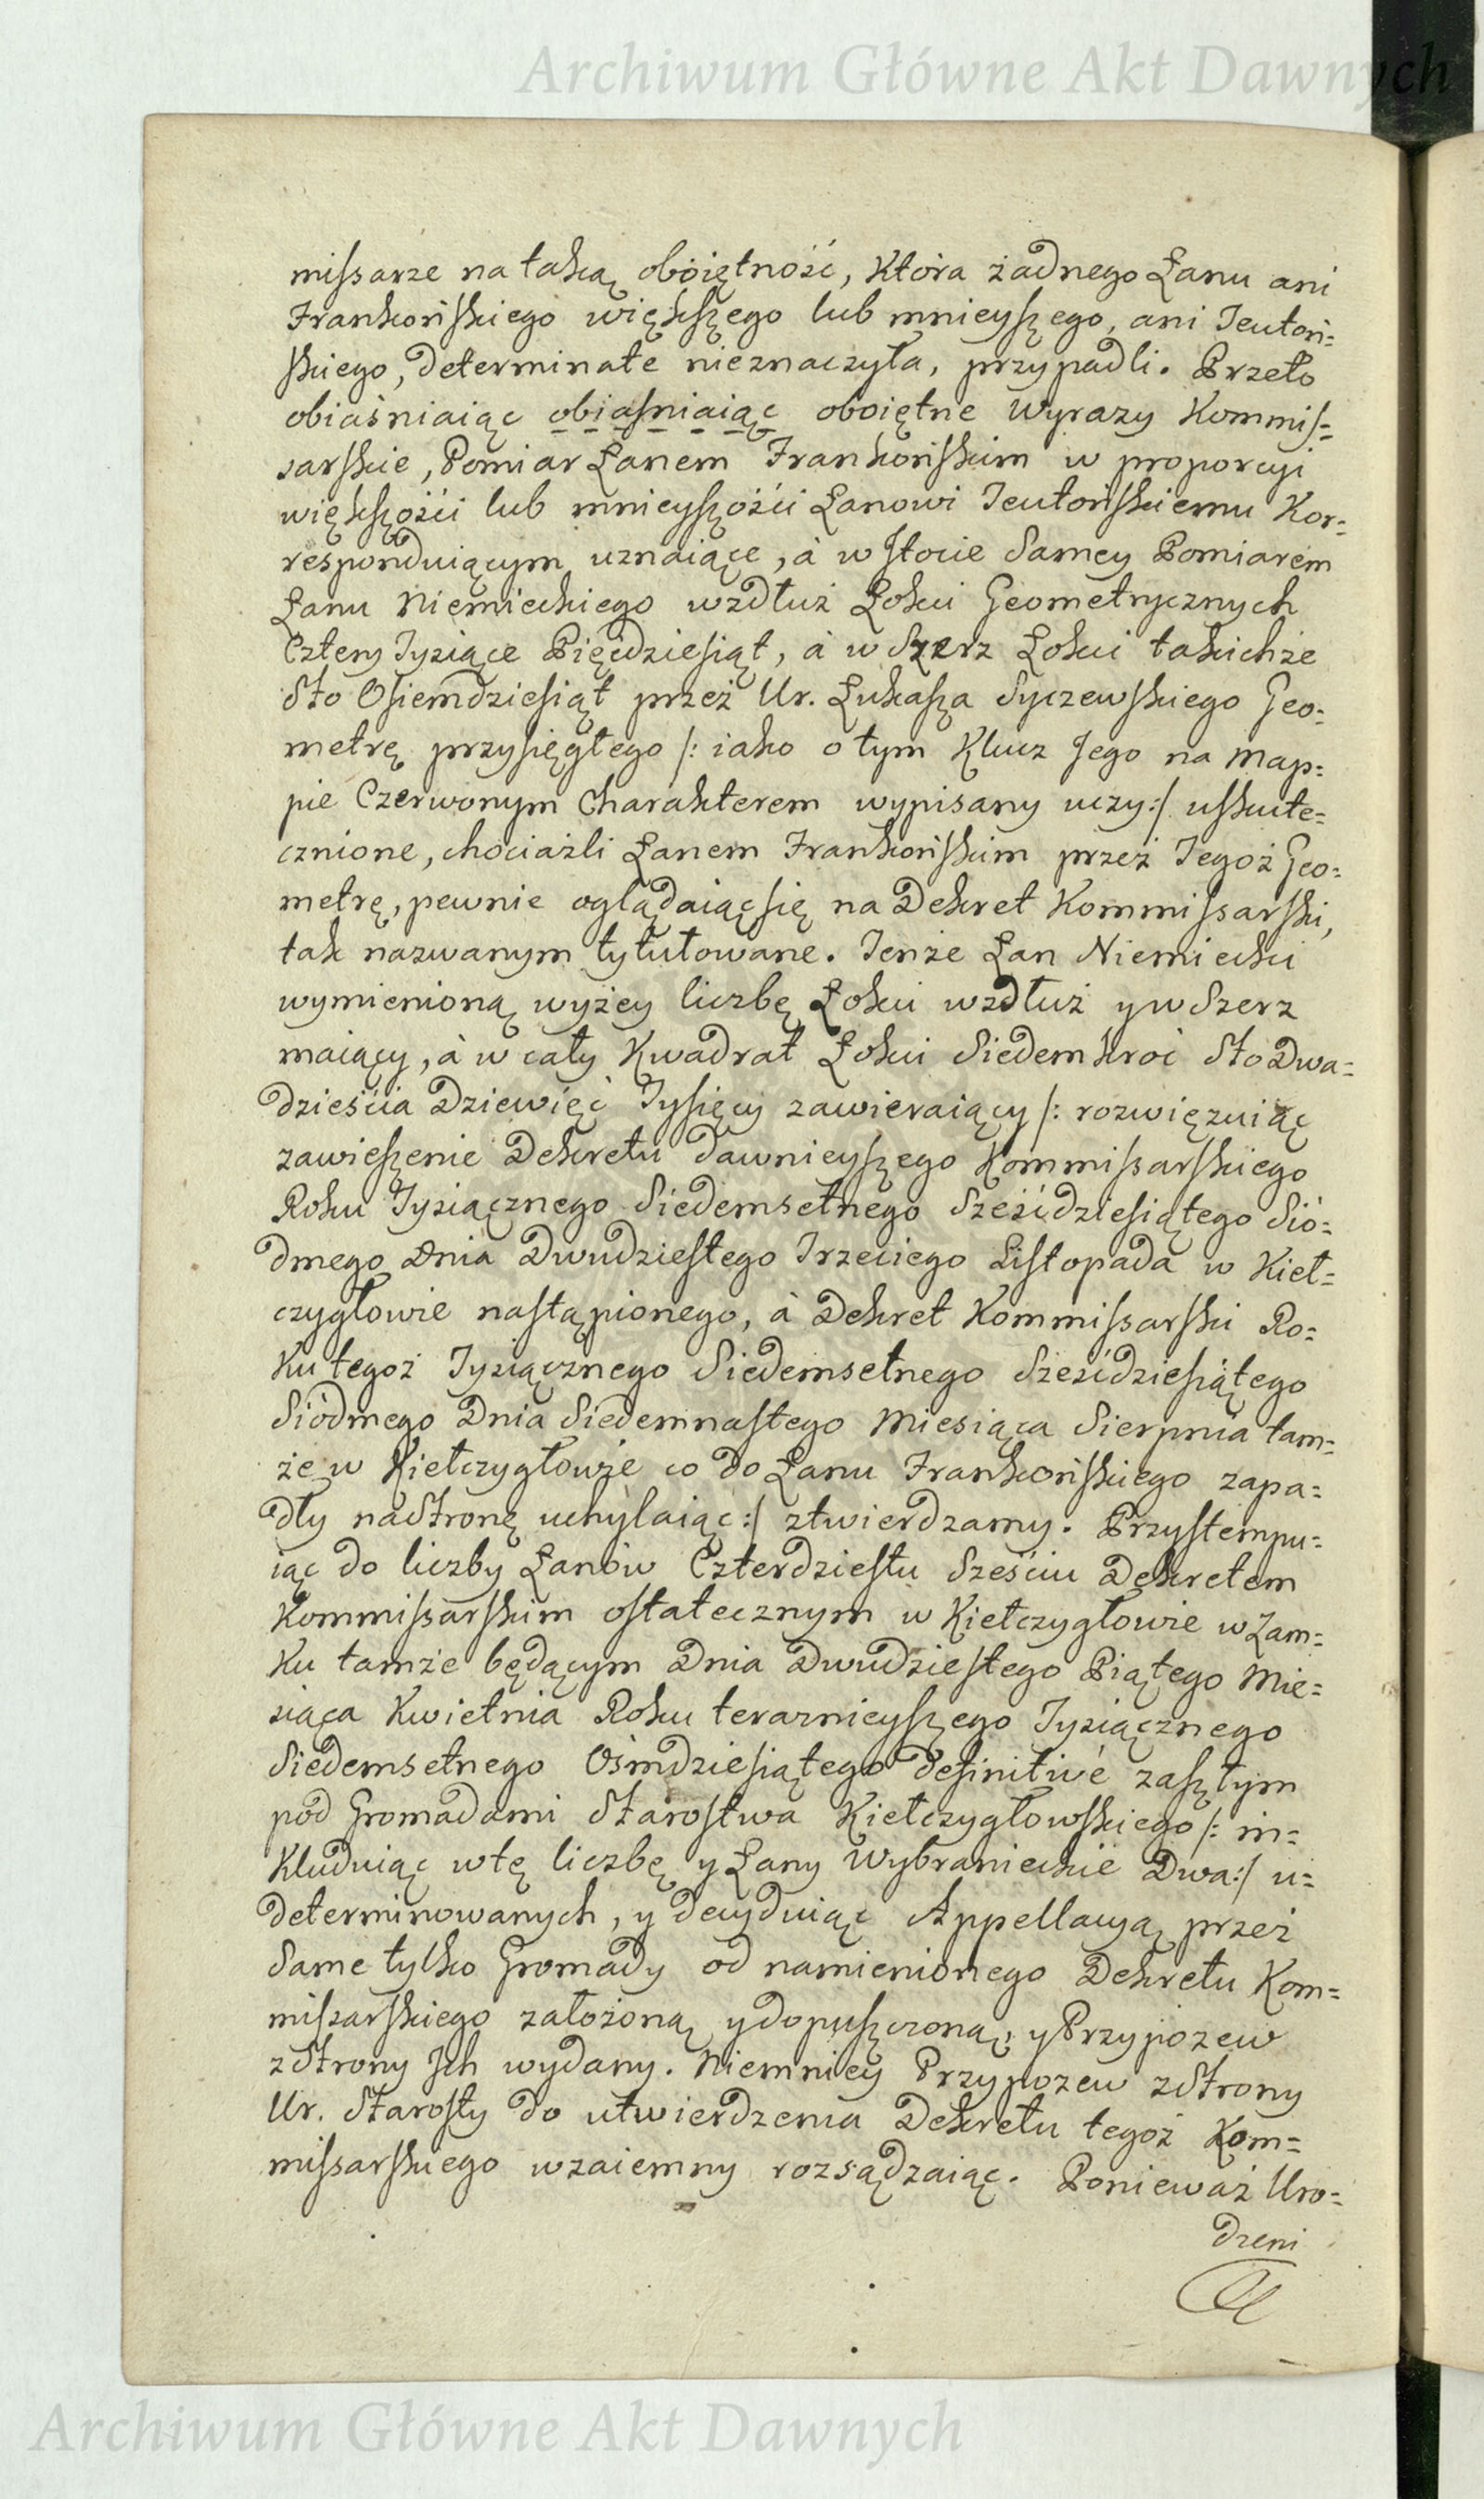 Archiwum Główne Akt Dawnych
missarze na taką oboiętność, Która żadnego Łanu ani
Frankońskiego większego lub mnieyszego, ani Teutoń=
skiego, determinate nieznaczyła, przypadli. Przeto
obiaśniaiąc obiasniaiąc oboiętne Wyrazy Kommis=
sarskie, Pomiar Łanem Frankońskim w proporcyi
większości lub mnieyszości Łanowi Teutońskiemu Kor=
responduiącym uznaiące, à w Jstocie Samey Pomiarem
Łanu Niemieckiego wzdłuż Łokci Geometrycznych
Cztery Tysiące Pięćdziesiąt, à w Szerz Łokci takichże
Sto Osiemdziesiąt przez Ur. Łukasza Syczewskiego Geo=
metrę przysięgłego /: iako o tym Klucz Jego na Map=
pie Czerwonym Charakterem wypisany uczy :/ uskute=
cznione, chociażli Łanem Frankońskim przez Tegoż Geo=
metrę, pewnie oglądaiąc się na Dekret Kommissarski,
tak nazwanym tytułowane. Tenże Łan Niemiecki
wymienioną wyżey liczbę Łokci wzdłuż y w Szerz
maiący, à w cały Kwadrat Łokci Siedemkroć Sto Dwa=
dzieścia Dziewięć Tysięcy zawieraiący /: rozwięzuiąc
zawieszenie Dekretu dawnieyszego Kommissarskiego
Roku Tysiącznego Siedemsetnego Sześćdziesiątego Sió=
dmego Dnia Dwudziestego Trzeciego Listopada w Kieł=
czygłowie nastąpionego, à Dekret Kommissarski Ro=
Ku tegoż Tysiącznego Siedemsetnego Sześćdziesiątego
Siódmego Dnia Siedemnastego Miesiąca Sierpnia tam=
że w Kiełczygłowie co do Łanu Frankońskiego zapa=
dły na Stronę uchylaiąc :/ ztwierdzamy. Przystempu=
iąc do liczby Łanów Czterdziestu Sześciu Dekretem
Kommissarskim ostatecznym w Kiełczygłowie w Zam=
Ku tamże będącym Dnia Dwudziestego Piątego Mie=
siąca Kwietnia Roku teraznieyszego Tysiącznego
Siedemsetnego Ośmdziesiątego definitivé zaszłym
pod Gromadami Starostwa Kiełczygłowskiego /: in=
Kluduiąc w tę liczbę y Łany Wybranieckie Dwa :/ u=
determinowanych, y decyduiąc Appellacyą przez
Same tylko Gromady od namienionego Dekretu Kom=
missarskiego założoną y dopuszczoną, y Przypozew
z Strony Jch wydany. Niemniey Przypozew z Strony
Ur. Starosty do utwierdzenia Dekretu tegoż Kom=
missarskiego wzaiemny rozsądzaiąc. Ponieważ Uro=
dzeni
Archiwum Główne Akt Dawnych